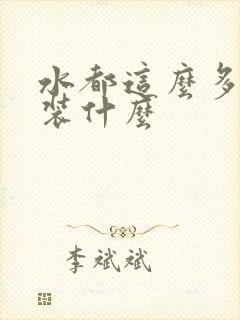 水都這麼多
裝什麼
李斌斌